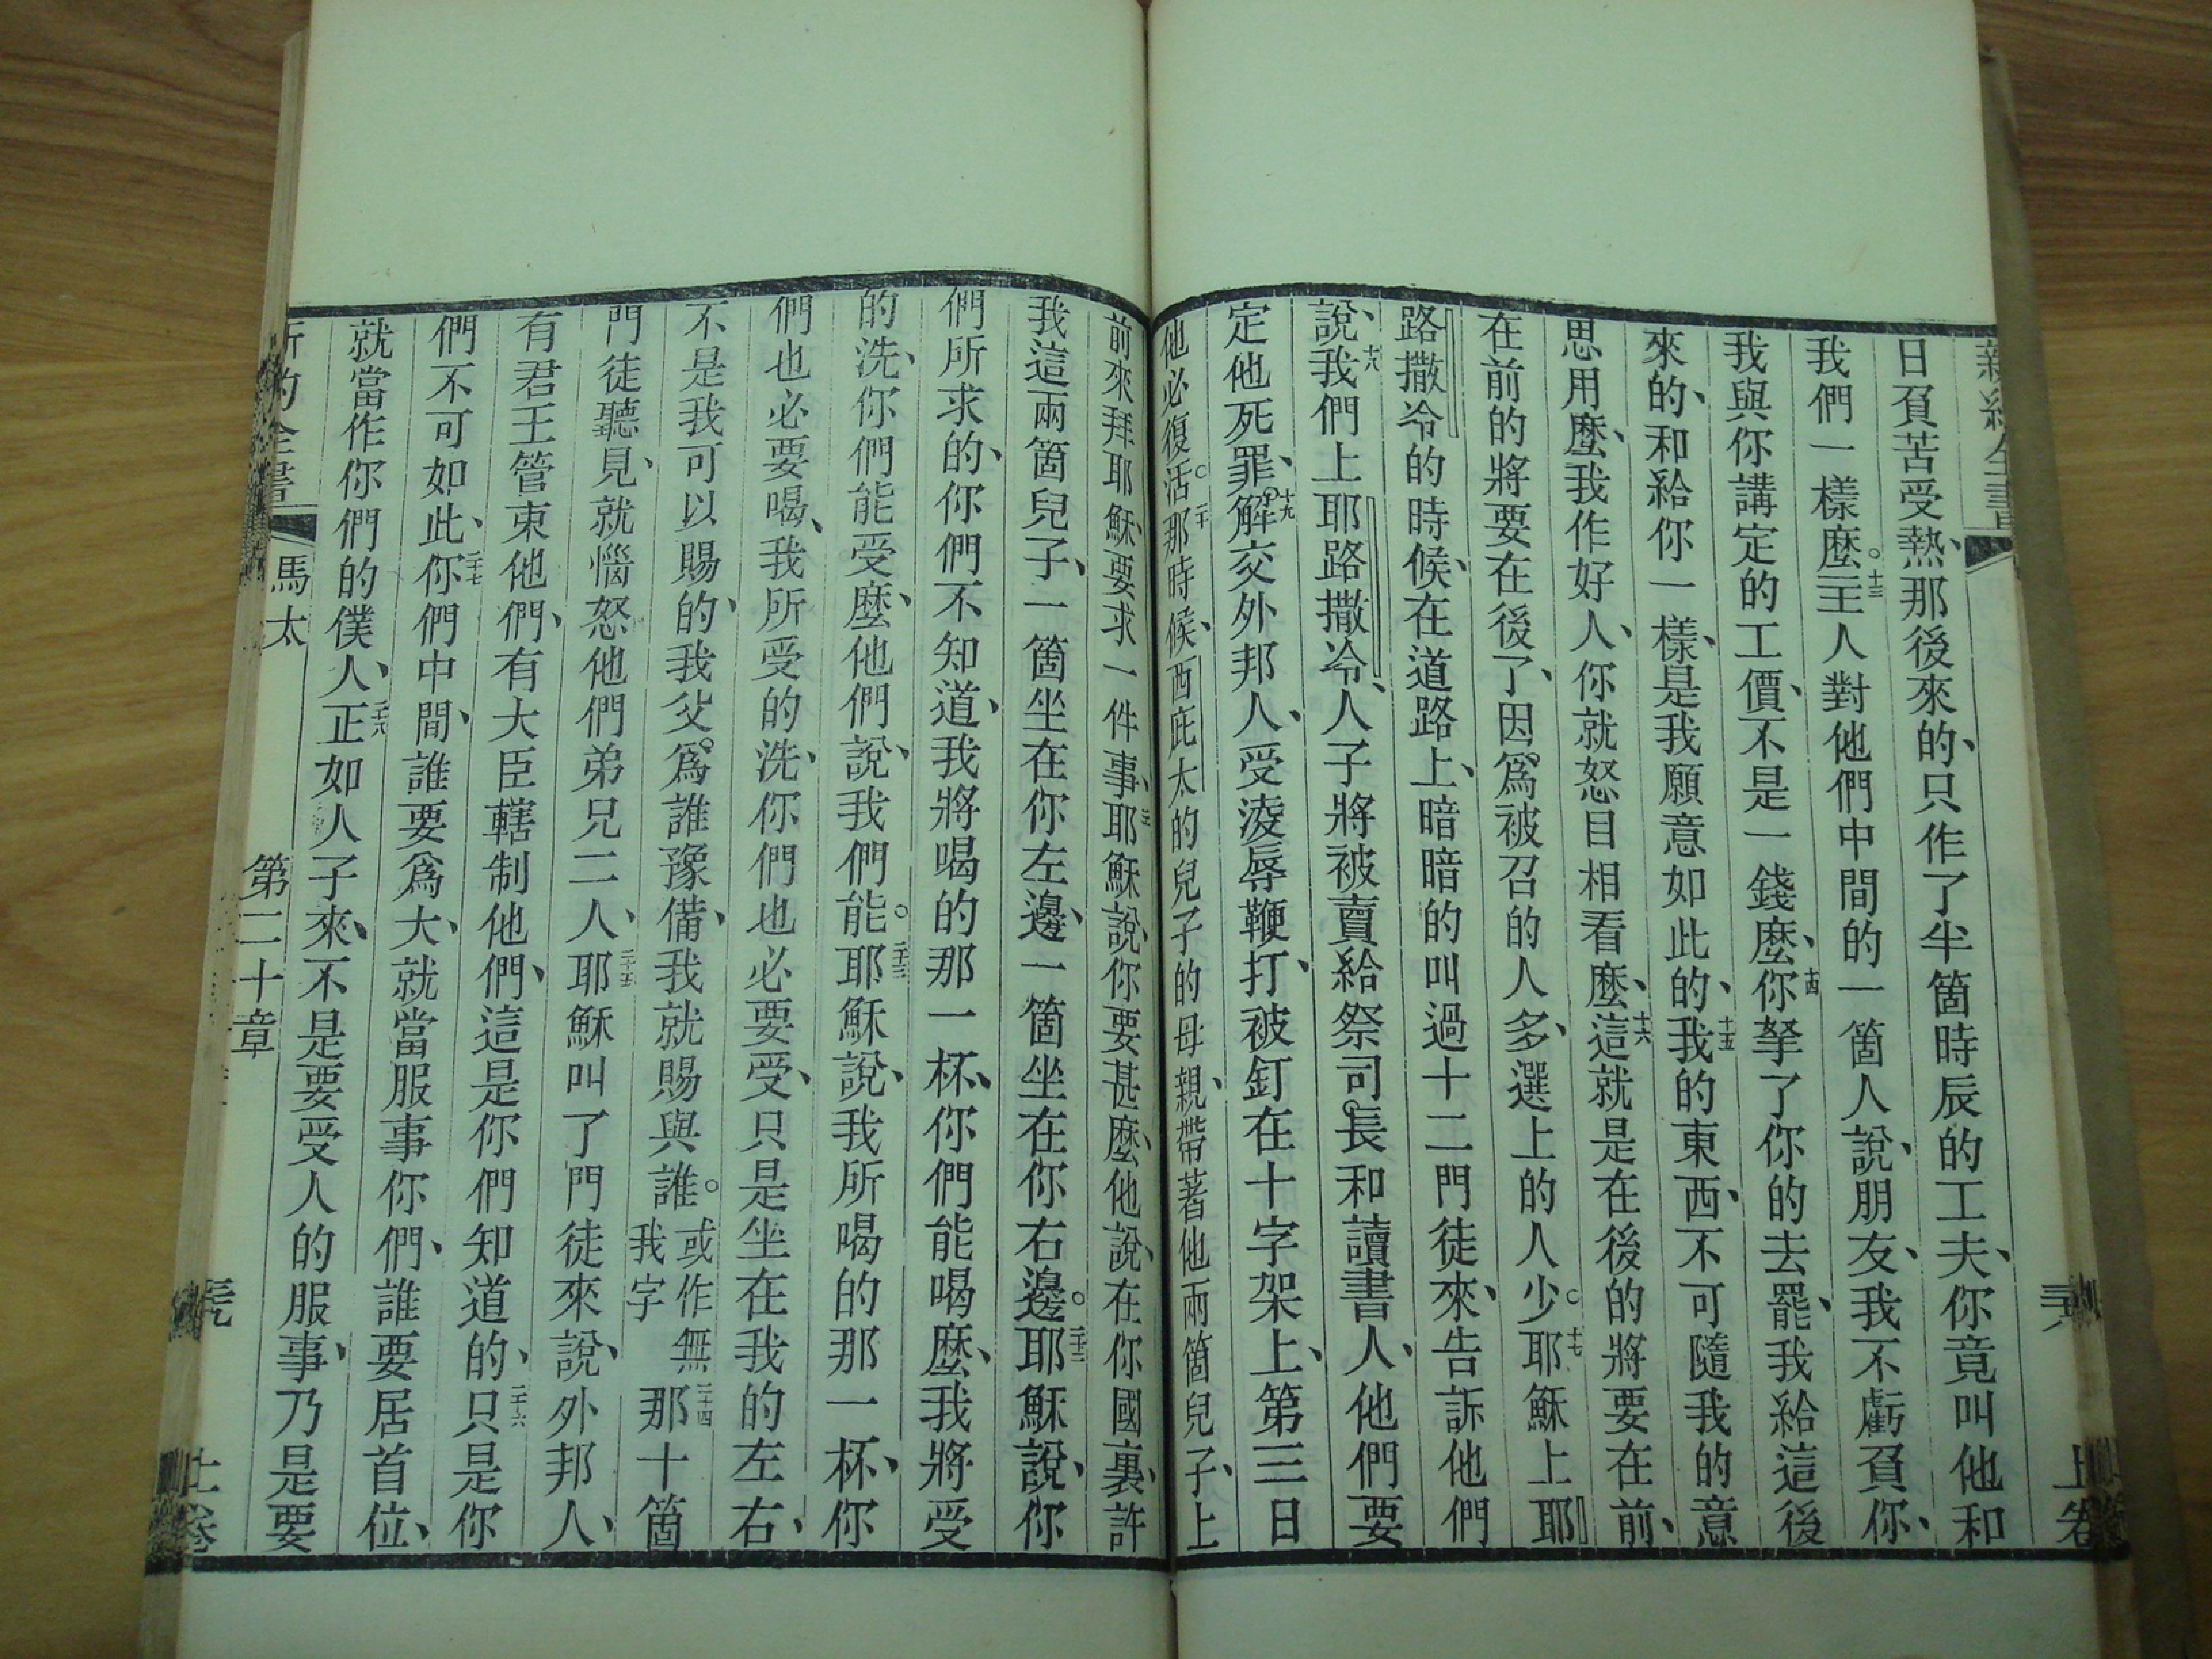 日負苦受熱、那後來的、只作了半箇時辰的工夫、你竟叫他和
我們一樣麽。十三主人對他們中間的一箇人說、朋友、我不虧負你、
我與你講定的工價、不是一錢麽、十四你拏了你的去罷、我給這後
來的、和給你一樣、是我願意如此的、十五我的東西、不可隨我的意
思用麽、我作好人、你就怒目相看麽、十六這就是在後的將要在前、
在前的將要在後了、因爲被召的人多、選上的人少。十七耶穌上耶
路撒冷的時候、在道路上、暗暗的叫過十二門徒來、告訴他們
說、十八我們上耶路撒冷、人子將被賣給祭司長和讀書人、他們要
定他死罪、十九解交外邦人、受淩辱鞭打、被釘在十字架上、第三日
他必復活。二十那時候、西庇太的兒子的母親、帶著他兩箇兒子、上
前來拜耶穌、要求一件事、耶穌說、你要甚麽、他說、在你國裏、許
我這兩箇兒子、一箇坐在你左邊、一箇坐在你右邊。二十二耶穌說、你
們所求的、你們不知道、我將喝的那一杯、你們能喝麽、我將受
的洗、你們能受麽、他們說、我們能。二十三耶穌說、我所喝的那一杯、你
們也必要喝、我所受的洗、你們也必要受、只是坐在我的左右、
不是我可以賜的、我父爲誰豫備、我就賜與誰。或作無我字二十四那十箇
門徒聽見、就惱怒他們弟兄二人、二十五耶穌叫了門徒來說、外邦人、
有君王管束他們、有大臣轄制他們、這是你們知道的、二十六只是你
們不可如此、二十七你們中間、誰要爲大、就當服事你們、誰要居首位、
就當作你們的僕人、二十八正如人子來、不是要受人的服事、乃是要
馬太 第二十章